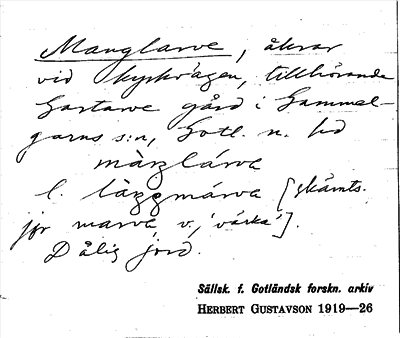 Manglarve, åkrar
vid kyrkvägen, tillhörande
Gartarve gård i Gammel-
garns s:n, Gotl. n. hd
màŋlárva
l. làŋgmárva [skämts.
jfr marva, v., 'värka'].
Dålig jord.
Sällsk. f. Gotländsk forskn. arkiv
HERBERT GUSTAVSON 1919—26